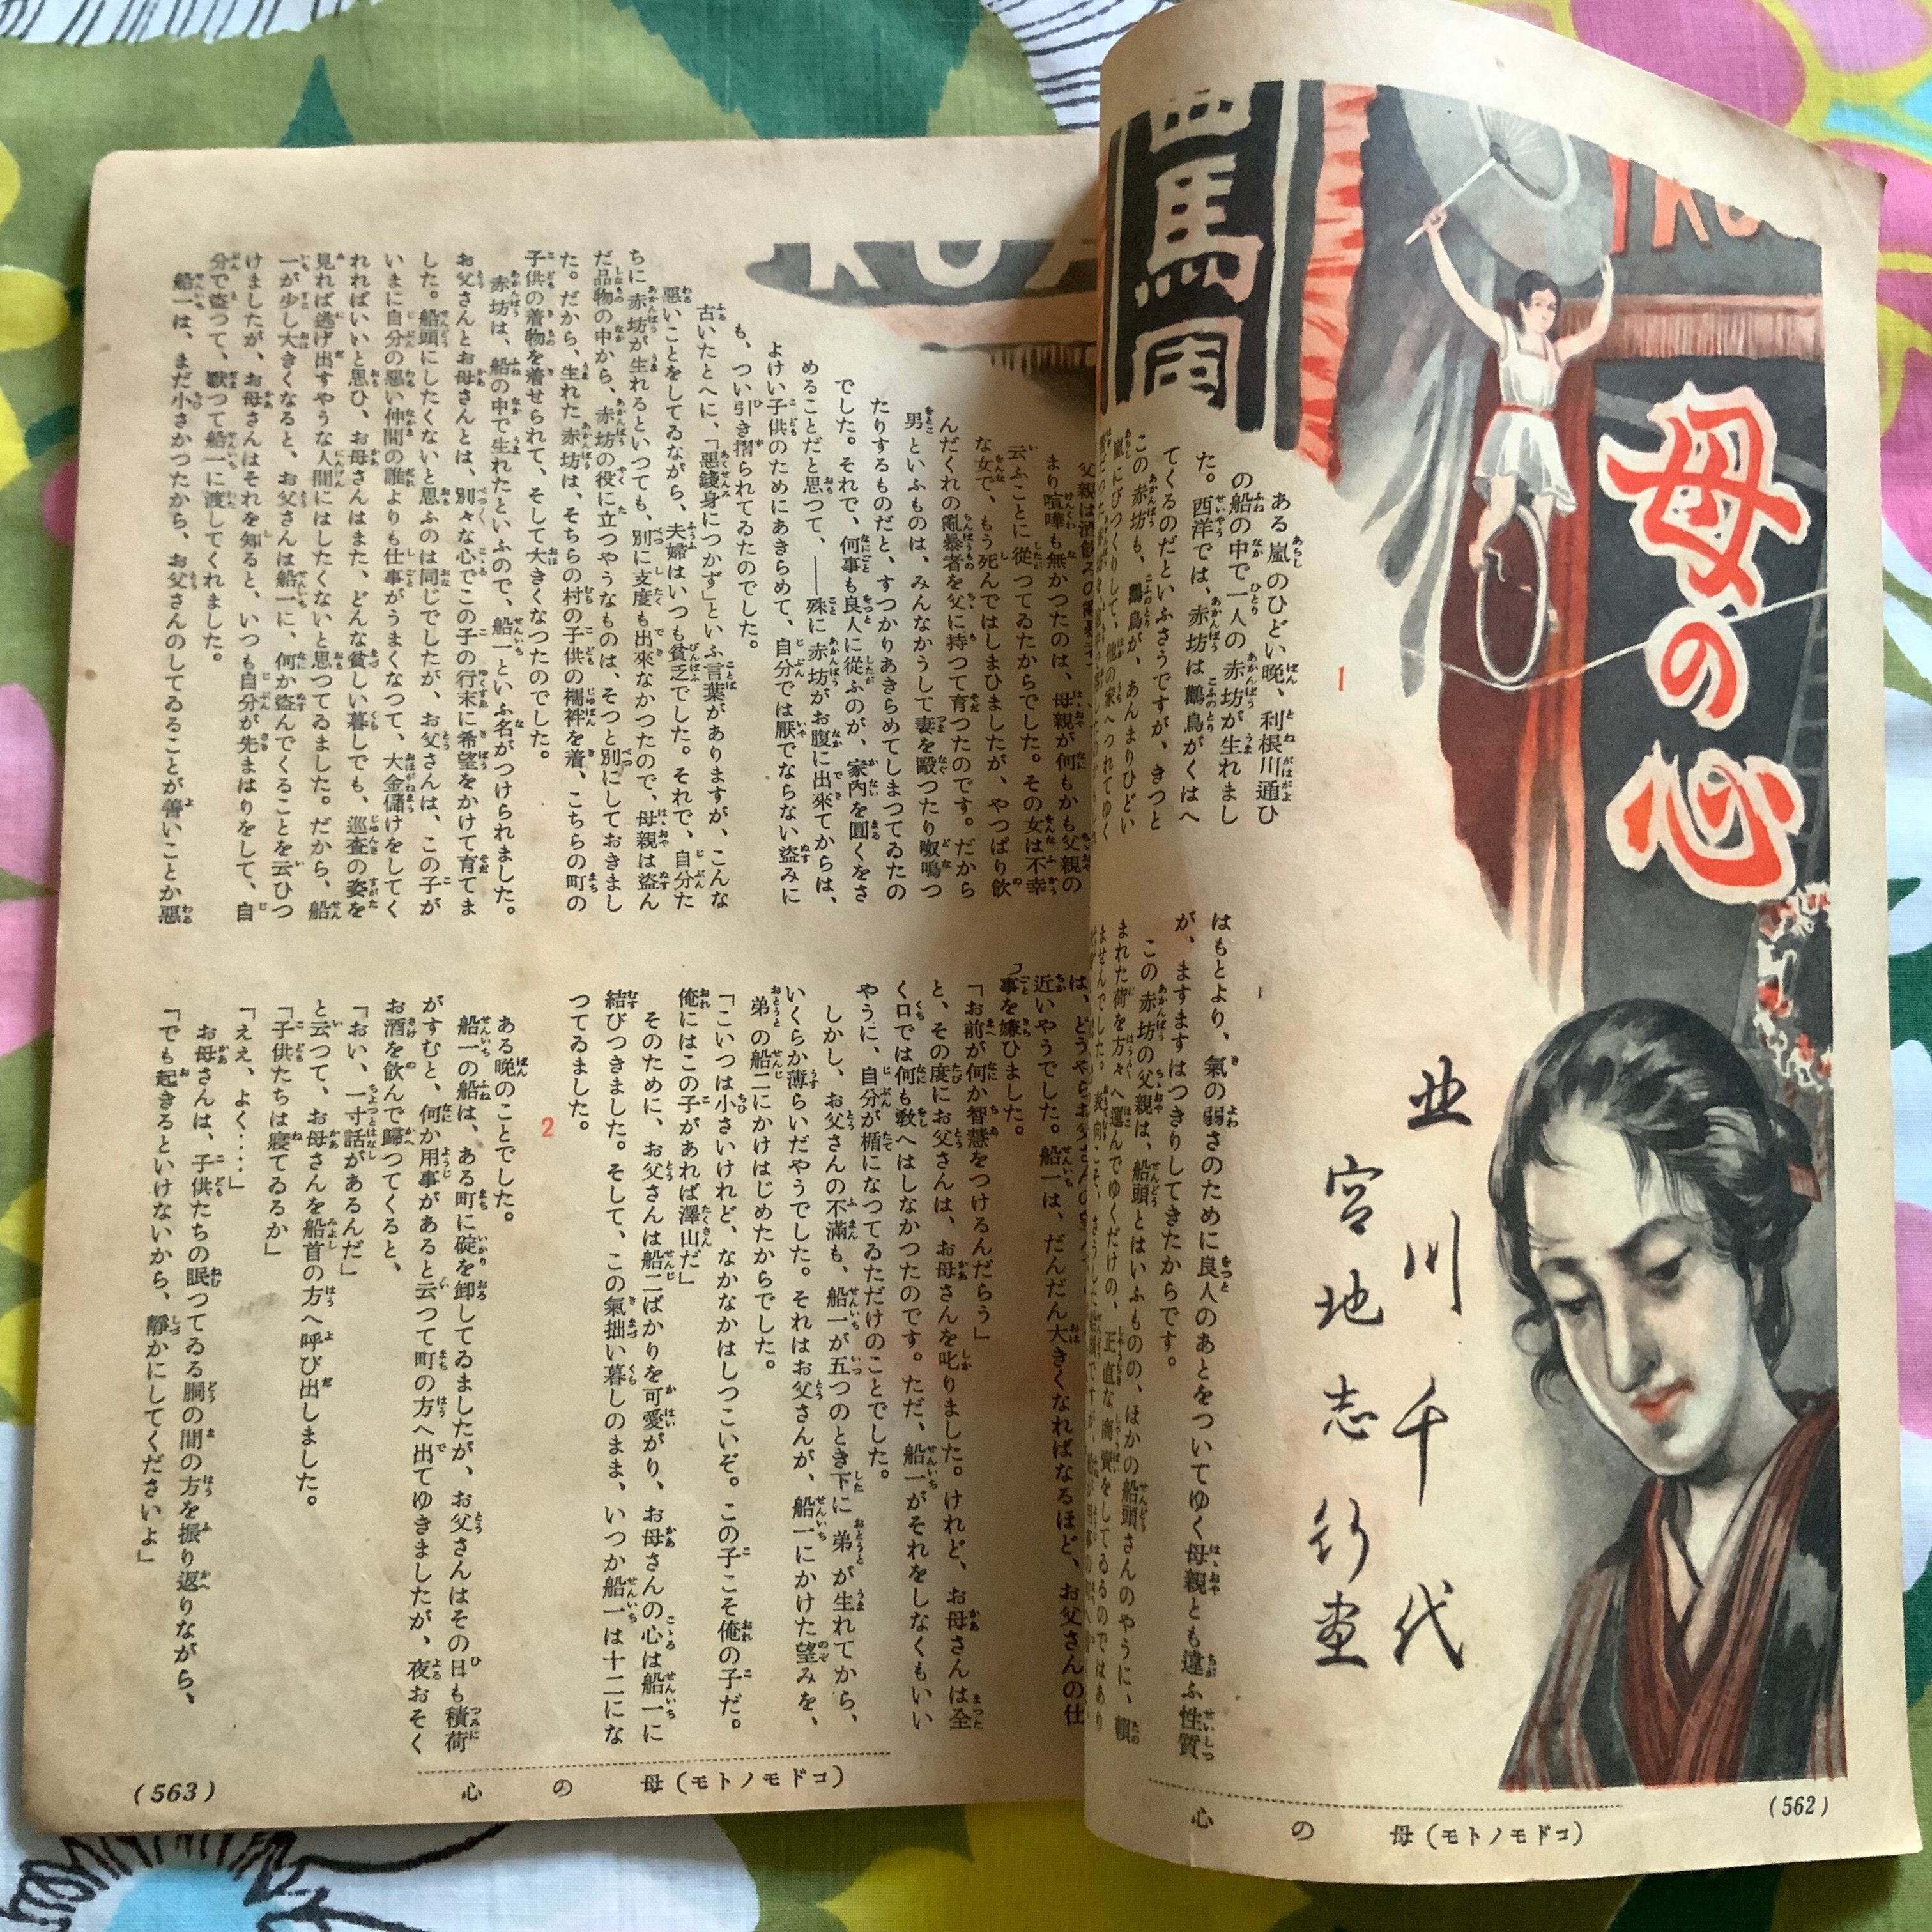 母の心
北川千代
宮地志行画
1
ある嵐のひどい晩、利根川通ひ
の船の中で一人の赤坊が生れまし
た。西洋では、赤坊は鸛鳥がくはへ
てくるのだといふさうですが、きつと
この赤坊も、鸛鳥が、あんまりひどい
嵐にびつくりして、他の家へつれてゆく
はもとより、氣の弱さのために良人のあとをついてゆく母親とも違ふ性質
が、ますますはつきりしてきたからです。
この赤坊の父親は、船頭とはいふものの、ほかの船頭さんのやうに、頼
まれた荷を方々へ運んでゆくだけの、正直な商賣をしてゐるのではあり
ませんでした。表向こそ、さうした船頭ですが、
(562)
母の心(コドモノトモ)
まり喧嘩も無かつたのは、母親が何もかも父親の
云ふことに從つてゐたからでした。その女は不幸
な女で、もう死んではしまひましたが、やつぱり飲
んだくれの亂暴者を父に持つて育つたのです。だから
男といふものは、みんなかうして妻を毆つたり呶鳴つ
たりするものだと、すつかりあきらめてしまつてゐたの
でした。それで、何事も良人に從ふのが、家内を圓くをさ
めることだと思つて、――殊に赤坊がお腹に出來てからは、
よけい子供のためにあきらめて、自分では厭でならない盗みに
も、つい引き摺られてゐたのでした。
古いたとへに、「惡錢身につかず」といふ言葉がありますが、こんな
惡いことをしてゐながら、夫婦はいつも貧乏でした。それで、自分た
ちに赤坊が生れるといつても、別に支度も出來なかつたので、母親は盗ん
だ品物の中から、赤坊の役に立つやうなものは、そつと別にしておきまし
た。だから、生れた赤坊は、そちらの村の子供の襦袢を着、こちらの町の
子供の着物を着せられて、そして大きくなつたのでした。
赤坊は、船の中で生れたといふので、船一といふ名がつけられました。
お父さんとお母さんとは、別々な心でこの子の行末に希望をかけて育てま
した。船頭にしたくないと思ふのは同じでしたが、お父さんは、この子が
いまに自分の惡い仲間の誰よりも仕事がうまくなつて、大金儲けをしてく
れればいいと思ひ、お母さんはまた、どんな貧しい暮しでも、巡査の姿を
見れば逃げ出すやうな人間にはしたくないと思つてゐました。だから、船
一が少し大きくなると、お父さんは船一に、何か盗んでくることを云ひつ
けましたが、お母さんはそれを知ると、いつも自分が先まはりをして、自
分で盗つて、默つて船一に渡してくれました。
船一は、まだ小さかつたから、お父さんのしてゐることが善いことか惡
近いやうでした。船一は、だんだん大きくなればなるほど、お父さんの仕
事を嫌ひました。
「お前が何か智慧をつけるんだらう」
と、その度にお父さんは、お母さんを叱りました。けれど、お母さんは全
く口では何も敎へはしなかつたのです。ただ、船一がそれをしなくもいい
やうに、自分が楯になつてゐただけのことでした。
しかし、お父さんの不滿も、船一が五つのとき下に弟が生れてから、
いくらか薄らいだやうでした。それはお父さんが、船一にかけた望みを、
弟の船二にかけはじめたからでした。
「こいつは小さいけれど、なかなかはしつこいぞ。この子こそ俺の子だ。
俺にはこの子があれば澤山だ」
そのために、お父さんは船二ばかりを可愛がり、お母さんの心は船一に
結びつきました。そして、この氣拙い暮しのまま、いつか船一は十二にな
つてゐました。
2
ある晩のことでした。
船一の船は、ある町に碇を卸してゐましたが、お父さんはその日も積荷
がすむと、何か用事があると云つて町の方へ出てゆきましたが、夜おそく
お酒を飲んで歸つてくると、
「おい、一寸話があるんだ」
と云つて、お母さんを船首の方へ呼び出しました。
「子供たちは寢てゐるか」
「ええ、よく‥‥」
お母さんは、子供たちの眠つてゐる胴の間の方を振り返りながら、
「でも起きるといけないから、靜かにしてくださいよ」
母の心(コドモノトモ)
(563)